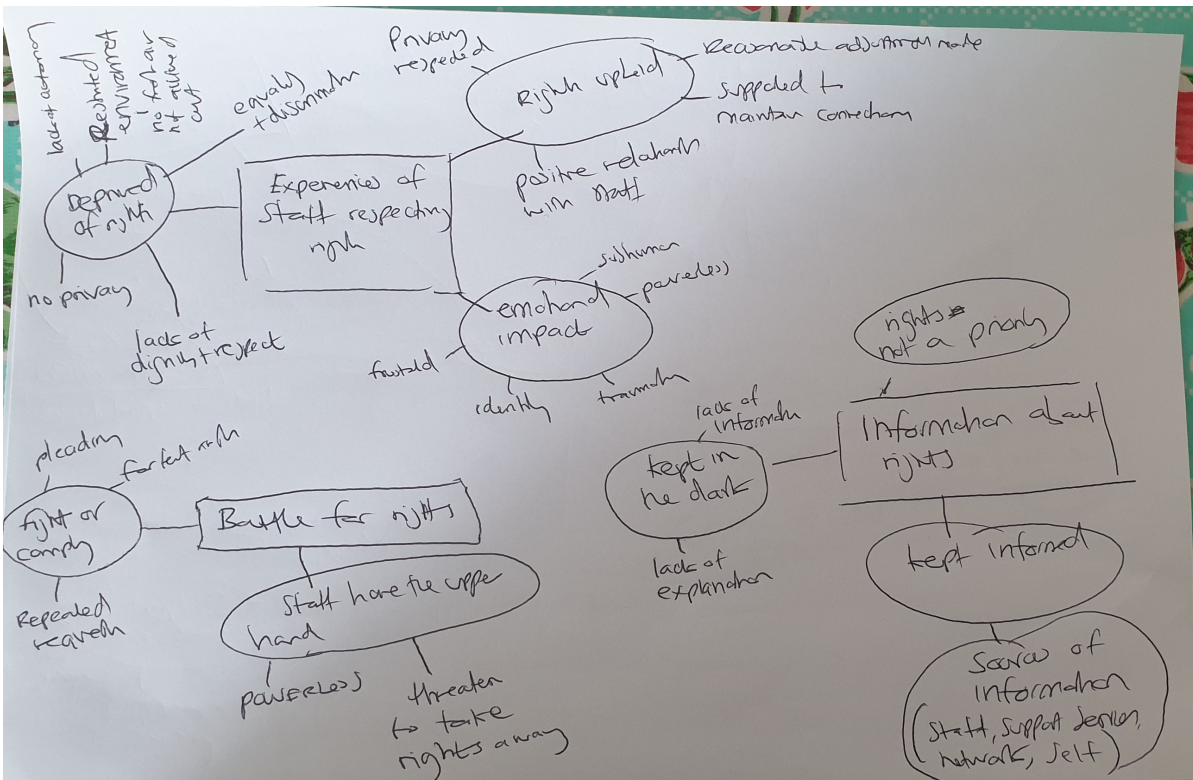 lack of autonomy
Restricted
environment
no fresh air
not allowed
out
equality
+ discrimination
Deprived
of rights
no privacy
lack of
dignity + respect
Experiences of
Staff respecting
rights
Privacy
respected
Rights upheld
Reasonable adjustment made
supported to
maintain connections
positive relationships
with staff
emotional
impact
subhuman
powerless
frustrated
identity
traumatic
rights
not a priority
Information about
rights
lack of
information
kept in
the dark
lack of
explanation
kept informed
Sources of
information
(Staff, Support Services,
network, Self)
pleading
fight or
comply
Repeated
requests
Battle for rights
Staff have the upper
hand
POWERLESS
threaten
to take
rights away